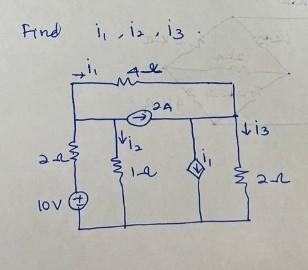 Find i₁, i₂, i₃.
i₁
4Ω
2A
i₂
i₃
2Ω
1Ω
i₁
2Ω
10V